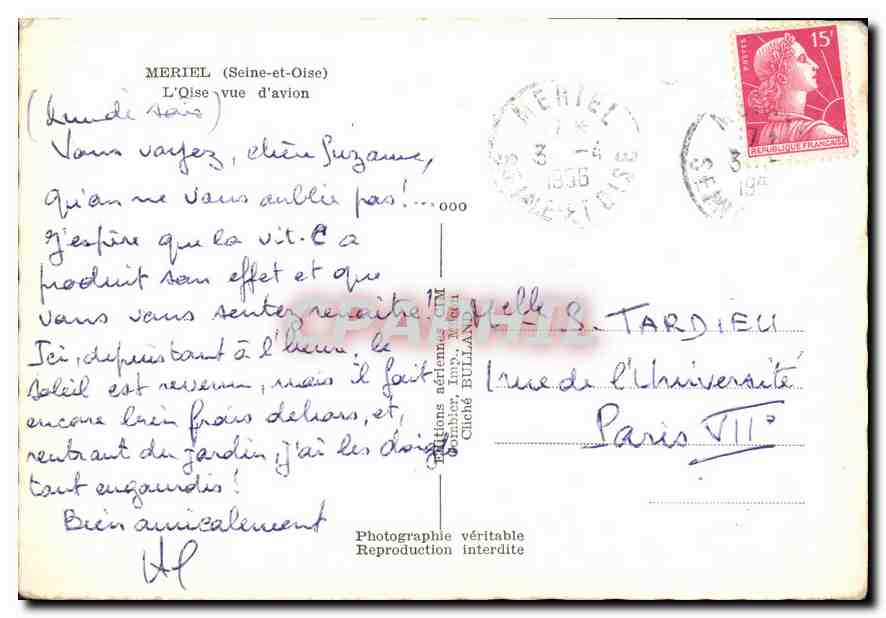 MERIEL (Seine-et-Oise)
L'Oise vue d'avion
(Lundi soir)
Vous voyez, chère Suzanne,
qu'on ne vous oublie pas!...
J'espère que la vit. C a
produit son effet et que
vous vous sentez renaître!
Ici, depuis tout à l'heure, le
soleil est revenu, mais il fait
encore bien frais dehors, et,
rentrant du jardin, j'ai les doigts
tout engourdis!
Bien amicalement
ooo
Editions aériennes CIM
Combier, Imp., Mâcon
Cliché BULLAND
CPAPHIL
Photographie véritable
Reproduction interdite
MERIEL
3 -4
1956
SEINE-ET-OISE
POSTES
15F
REPUBLIQUE FRANÇAISE
Melle S. TARDIEU
1 rue de l'Université
Paris VII°